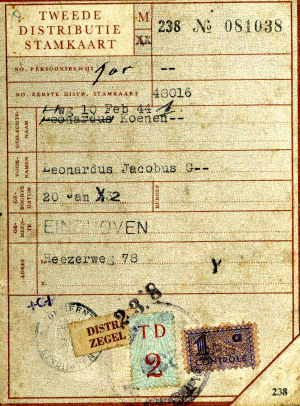 TWEEDE
DISTRIBUTIE
STAMKAART
M
XX
238 № 081038
NO. PERSOONSBEWIJS --
NO. EERSTE DISTR. STAMKAART 48016
Aug 10 Feb 44
GESLACHTSNAAM Leonardus Koenen--
VOORNAMEN Leonardus Jacobus G--
GEBOORTEDATUM 20 Jan
BEROEP
GEMEENTE EINDHOVEN
ADRES Heezerweg 78 Y
238
GEMEENTE
DISTR.
ZEGEL
TD
2
1
CONTROLE
238